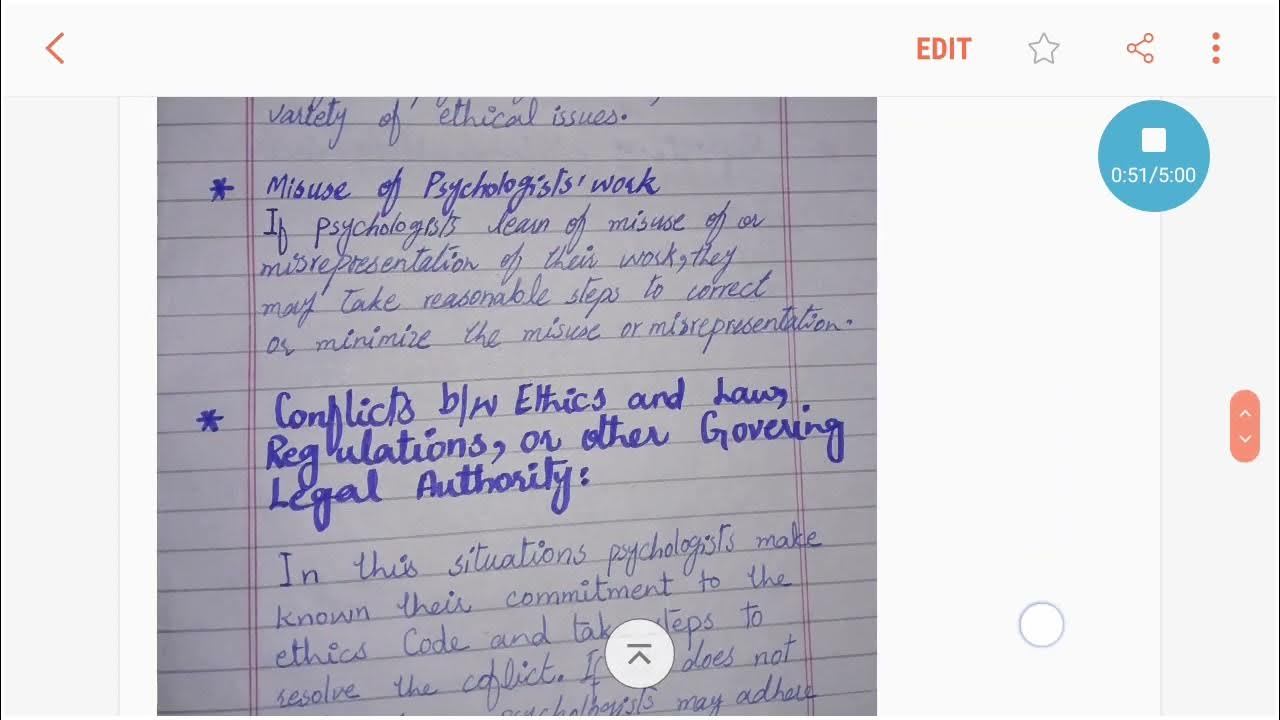 EDIT
0:51/5:00
variety of ethical issues.
* Misuse of Psychologists' work
If psychologists learn of misuse of or
misrepresentation of their work, they
may take reasonable steps to correct
or minimize the misuse or misrepresentation.
* Conflicts b/w Ethics and Law,
Regulations, or other Govering
Legal Authority:
In this situations psychologists make
known their commitment to the
ethics Code and take steps to
resolve the coflict. If does not
psychologists may adhere